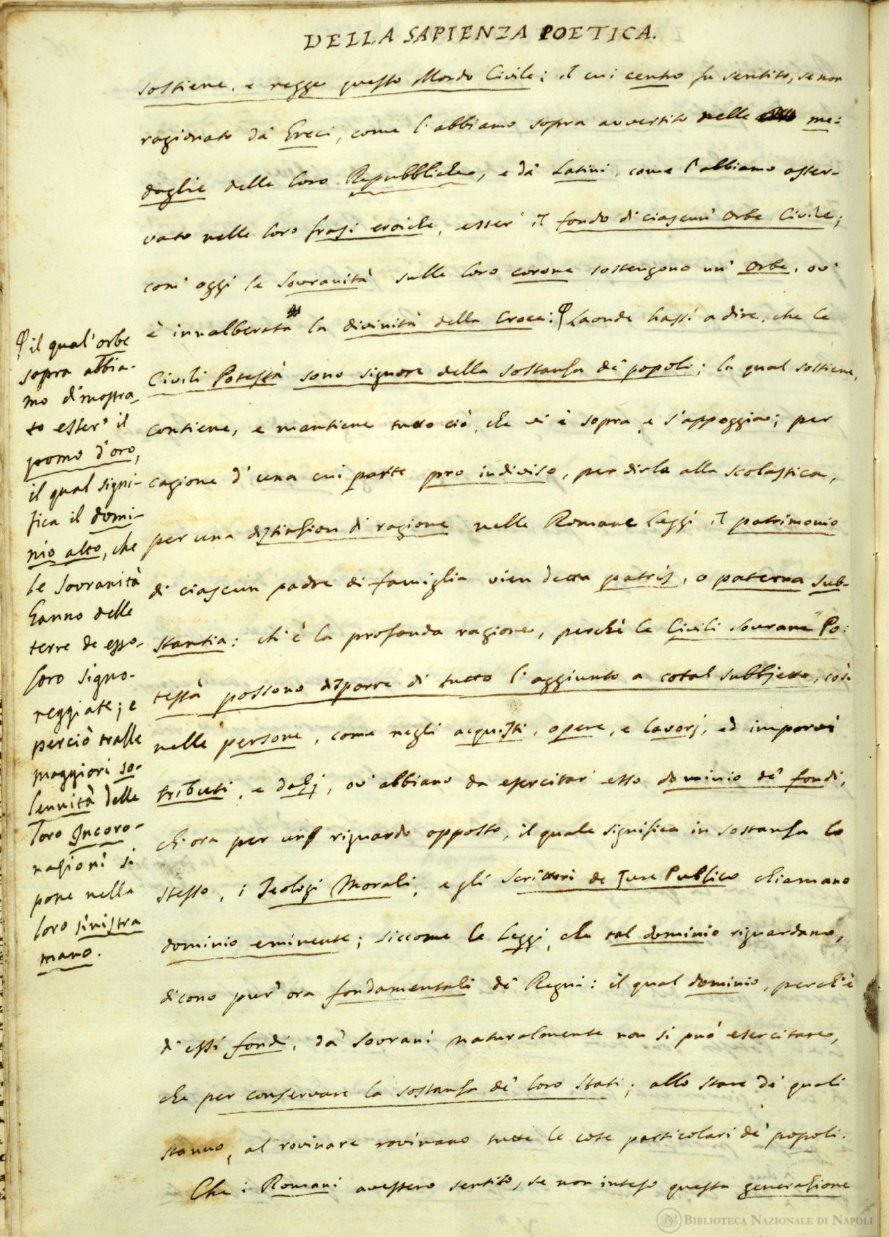 DELLA SAPIENZA POETICA.
sostiene, e regge questo Mondo Civile: il cui centro fu sentito, se non
ragionato da' Greci, come l'abbiamo sopra avvertito nelle me-
daglie delle loro Repubbliche, e da' Latini, come l'abbiamo osser-
vato nelle loro frasi eroiche, esser' il fondo di ciascun' Orbe Civile;
com' oggi le Sovranità sulle loro corone sostengono un' Orbe, ov'
è innalberata la divinità della Croce: Laonde hassi a dire, che le
Civili Potestà sono signore della sostanza de' popoli; la qual sostiene,
contiene, e mantiene tutto ciò, che vi è sopra, e s'appoggia; per
cagione d' una cui parte pro indiviso, per dirla alla scolastica,
per una distinzion di ragione nelle Romane Leggi il patrimonio
di ciascun padre di famiglia vien detta patris, o paterna sub-
stantia: ch'è la profonda ragione, perchè le Civili Sovrane Po-
testà possono disporre di tutto l'aggiunto a cotal subbjetto, così
nelle persone, come negli acquisti, opere, e lavorj, ed imporvi
tributi, e dazj, ov' abbiano da esercitar esso dominio de' fondi,
ch'ora per un riguardo opposto, il quale significa in sostanza lo
stesso, i Teologi Morali, e gli Scrittori de Jure Publico chiamano
dominio eminente; siccome le Leggi, che tal dominio riguardano,
dicono pur' ora fondamentali de' Regni: il qual dominio, perch'è
d' essi fondi, da' Sovrani naturalmente non si può esercitare,
che per conservare la sostanza de' loro Stati; allo stare de' quali
stanno, al rovinare rovinano tutte le cose particolari de' popoli.
Che i Romani avessero sentito, se non inteso questa generazione
il qual' orbe
sopra abbia-
mo dimostra-
to esser' il
pomo d'oro,
il qual signi-
fica il domi-
nio alto, che
le Sovranità
hanno delle
terre da esso-
loro signo-
reggiate; e
perciò tralle
maggiori so-
lennità delle
loro Incoro-
nazioni si
pone nella
loro sinistra
mano.
BIBLIOTECA NAZIONALE DI NAPOLI